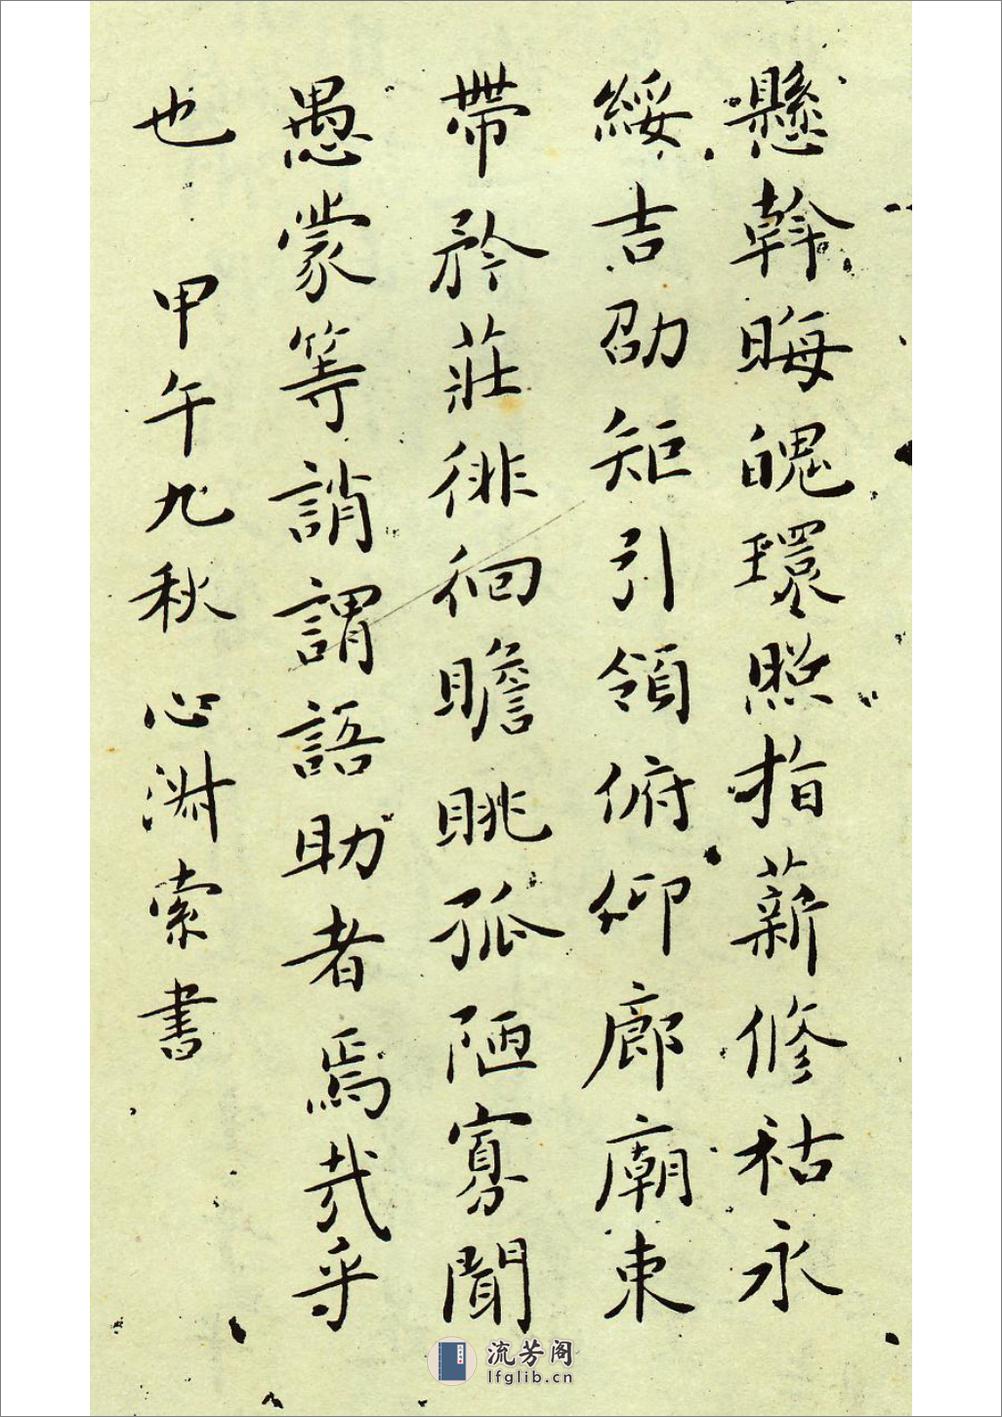 懸斡晦魄環照指薪修祜永
綏吉劭矩引領俯仰廊廟束
帶矜莊徘徊瞻眺孤陋寡聞
愚蒙等誚謂語助者焉哉乎
也 甲午九秋 心澍索書
流芳阁
lfglib.cn